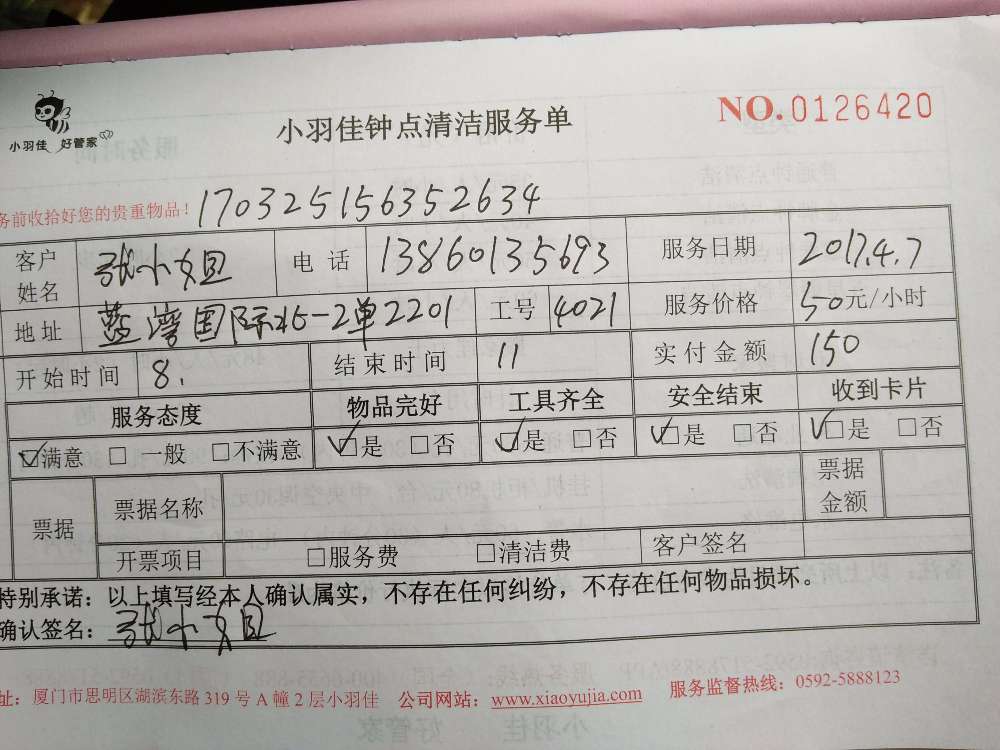 小羽佳 好管家
小羽佳钟点清洁服务单
NO.0126420
务前收拾好您的贵重物品!
170325156352634
客户姓名 张小姐 电话 13860135693 服务日期 2017.4.7
地址 蓝湾国际45-2单2201 工号 4021 服务价格 50元/小时
开始时间 8. 结束时间 11 实付金额 150
服务态度 物品完好 工具齐全 安全结束 收到卡片
☑满意 □ 一般 □不满意 ☑是 □否 ☑是 □否 ☑是 □否 ☑是 □否
票据 票据名称 票据金额
开票项目 □服务费 □清洁费 客户签名
特别承诺：以上填写经本人确认属实，不存在任何纠纷，不存在任何物品损坏。
确认签名：张小姐
址：厦门市思明区湖滨东路 319 号 A 幢 2 层小羽佳 公司网站：www.xiaoyujia.com 服务监督热线：0592-5888123